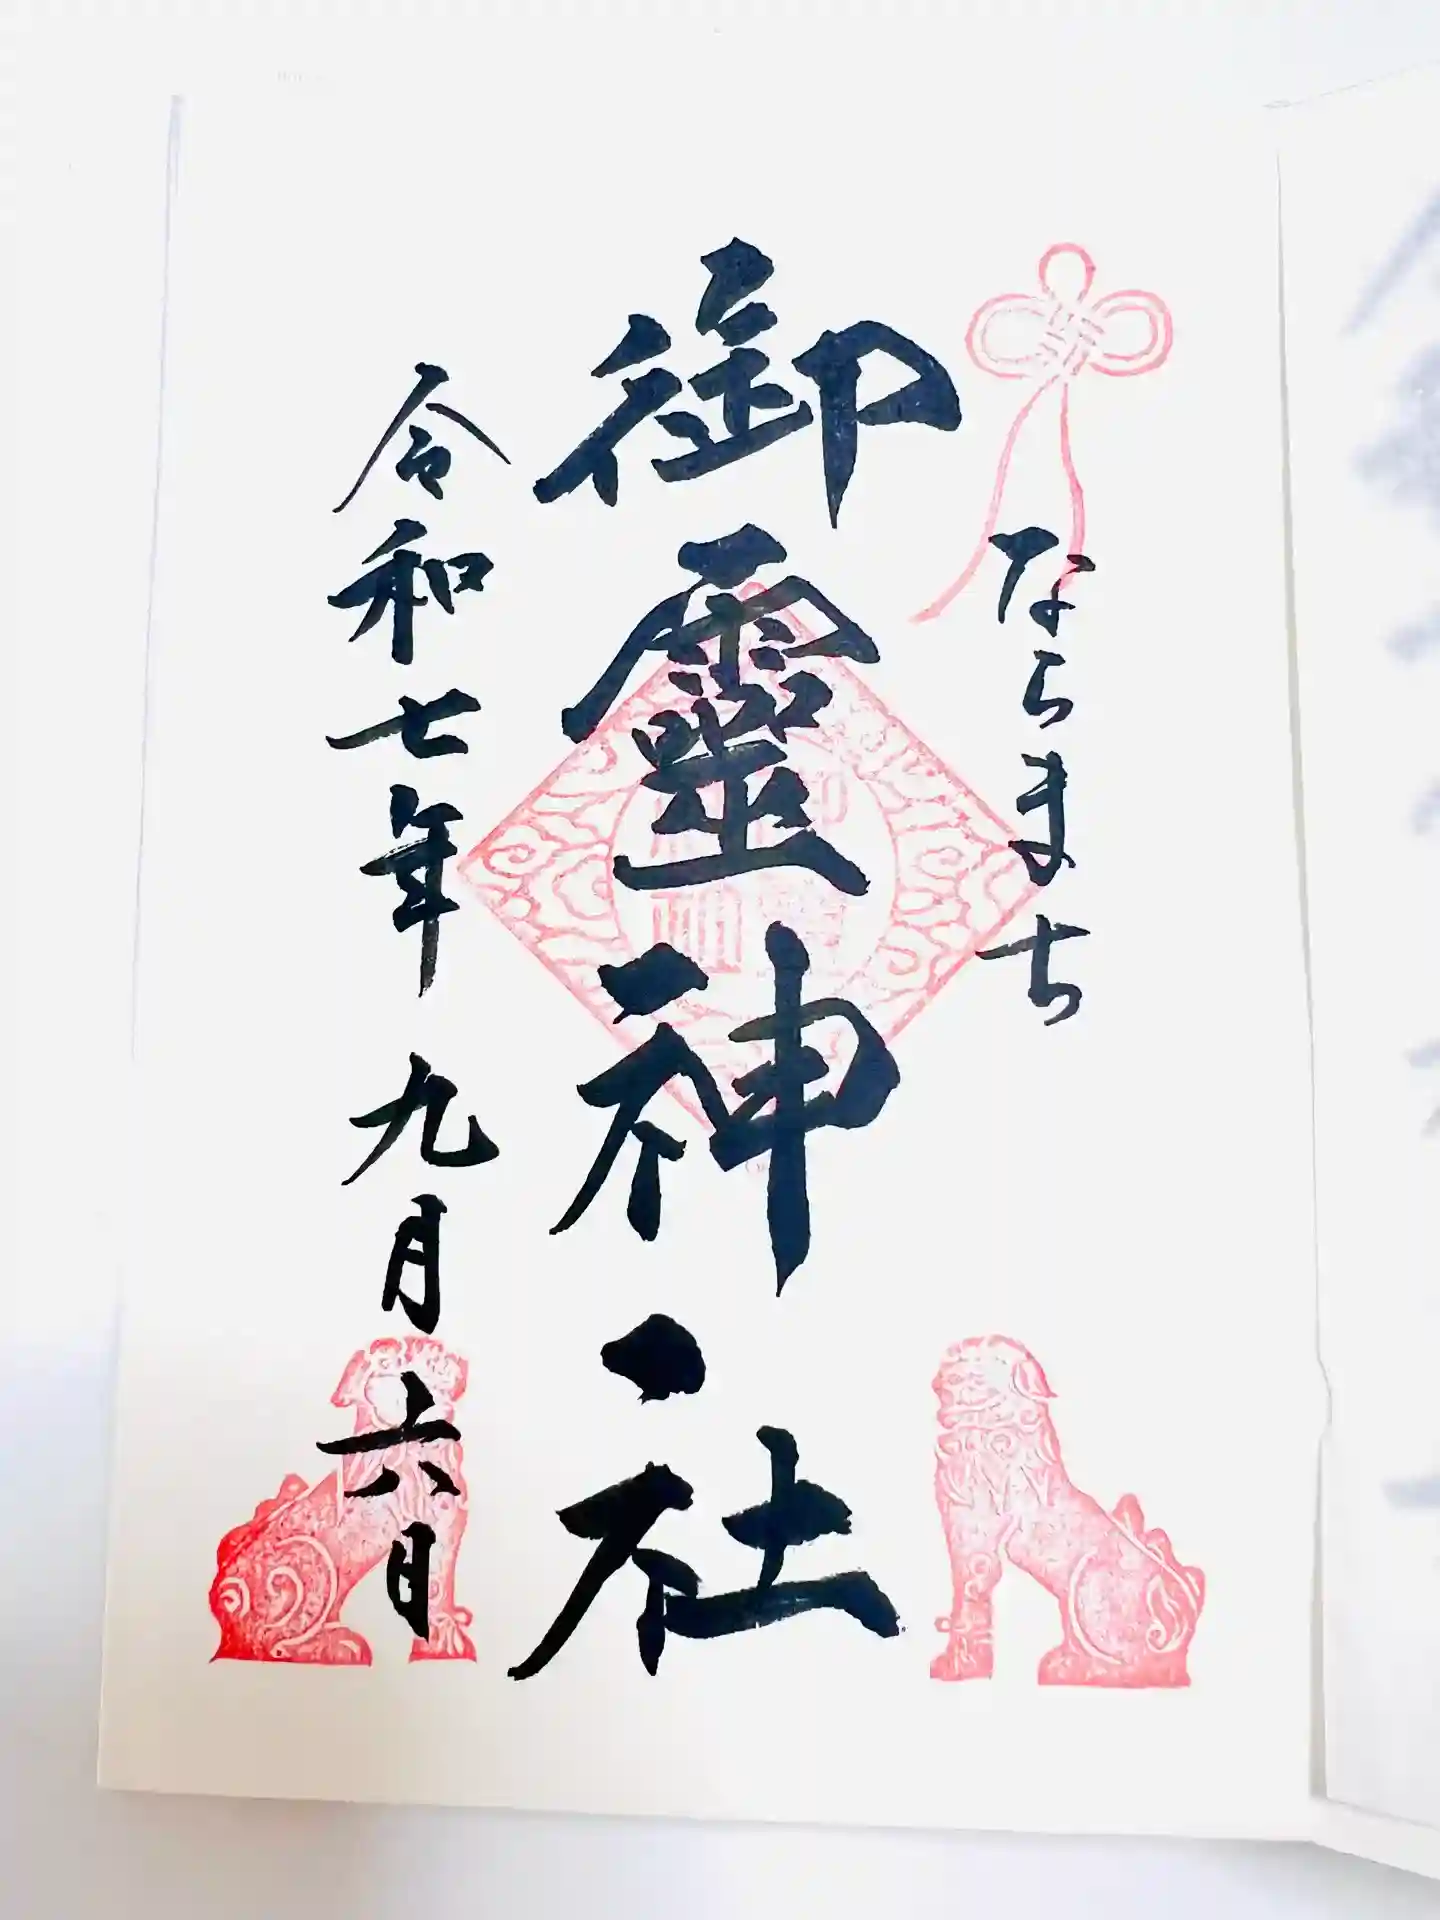 ならまち
御霊神社
令和七年 九月六日